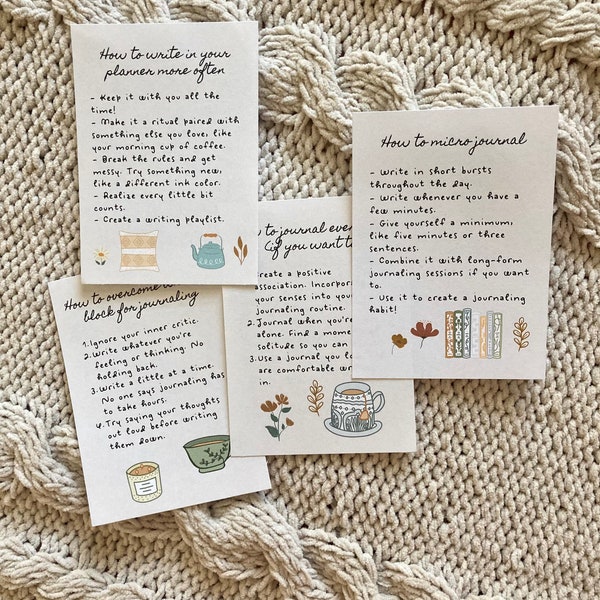 How to write in your
planner more often
- Keep it with you all the
time!
- Make it a ritual paired with
something else you love, like
your morning cup of coffee.
- Break the rules and get
messy. Try something new,
like a different ink color.
- Realize every little bit
counts.
- Create a writing playlist.
How to micro journal
- Write in short bursts
throughout the day.
- Write whenever you have a
few minutes.
- Give yourself a minimum,
like five minutes or three
sentences.
- Combine it with long-form
journaling sessions if you want
to.
- Use it to create a journaling
habit!
to journal
(if you want
Create a positive
association.
your senses into
journaling routine.
2. Journal when you're
alone. Find a
solitude so you can
3. Use a journal you
are comfortable
in.
How to overcome
block for journaling
1. Ignore your inner critic.
2. Write whatever you're
feeling or thinking. No
holding back.
3. Write a little at a time.
No one says journaling has
to take hours.
4. Try saying your thoughts
out loud before writing
them down.